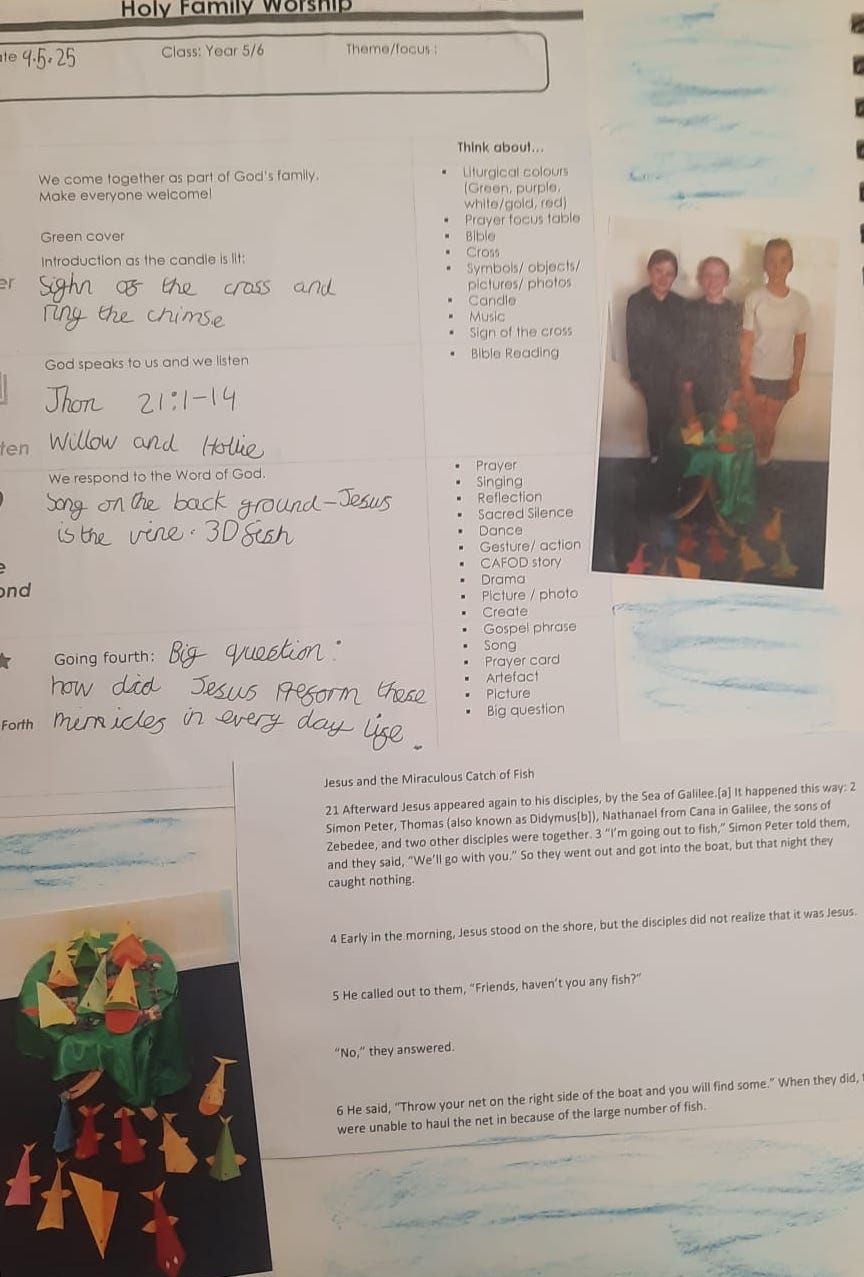 Holy Family Worship
ate 9.5.25 Class: Year 5/6 Theme/focus :
Think about...
We come together as part of God's family.
Make everyone welcome!
Green cover
Introduction as the candle is lit:
er Sighn of the cross and
ring the chimse
▪ Liturgical colours
(Green, purple,
white/gold, red)
▪ Prayer focus table
▪ Bible
▪ Cross
▪ Symbols/ objects/
pictures/ photos
▪ Candle
▪ Music
▪ Sign of the cross
God speaks to us and we listen
Jhon 21:1-14
ten Willow and Hollie
▪ Bible Reading
We respond to the Word of God.
Song on the back ground-Jesus
is the vine. 3D fish
e
ond
▪ Prayer
▪ Singing
▪ Reflection
▪ Sacred Silence
▪ Dance
▪ Gesture/ action
▪ CAFOD story
▪ Drama
▪ Picture / photo
▪ Create
▪ Gospel phrase
▪ Song
▪ Prayer card
▪ Artefact
▪ Picture
▪ Big question
Going fourth: Big question:
how did Jesus preform these
Forth mirricles in every day life.
Jesus and the Miraculous Catch of Fish
21 Afterward Jesus appeared again to his disciples, by the Sea of Galilee.[a] It happened this way: 2
Simon Peter, Thomas (also known as Didymus[b]), Nathanael from Cana in Galilee, the sons of
Zebedee, and two other disciples were together. 3 “I’m going out to fish,” Simon Peter told them,
and they said, “We’ll go with you.” So they went out and got into the boat, but that night they
caught nothing.
4 Early in the morning, Jesus stood on the shore, but the disciples did not realize that it was Jesus.
5 He called out to them, “Friends, haven’t you any fish?”
“No,” they answered.
6 He said, “Throw your net on the right side of the boat and you will find some.” When they did,
were unable to haul the net in because of the large number of fish.